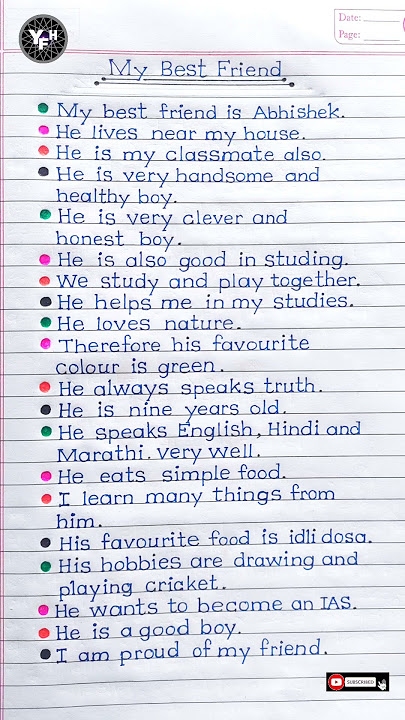 YFH
Date: ______
Page: ______
My Best Friend
My best friend is Abhishek.
He lives near my house.
He is my classmate also.
He is very handsome and
healthy boy.
He is very clever and
honest boy.
He is also good in studing.
We study and play together.
He helps me in my studies.
He loves nature.
Therefore his favourite
colour is green.
He always speaks truth.
He is nine years old.
He speaks English, Hindi and
Marathi. very well.
He eats simple food.
I learn many things from
him.
His favourite food is idli dosa.
His hobbies are drawing and
playing cricket.
He wants to become an IAS.
He is a good boy.
I am proud of my friend.
SUBSCRIBED